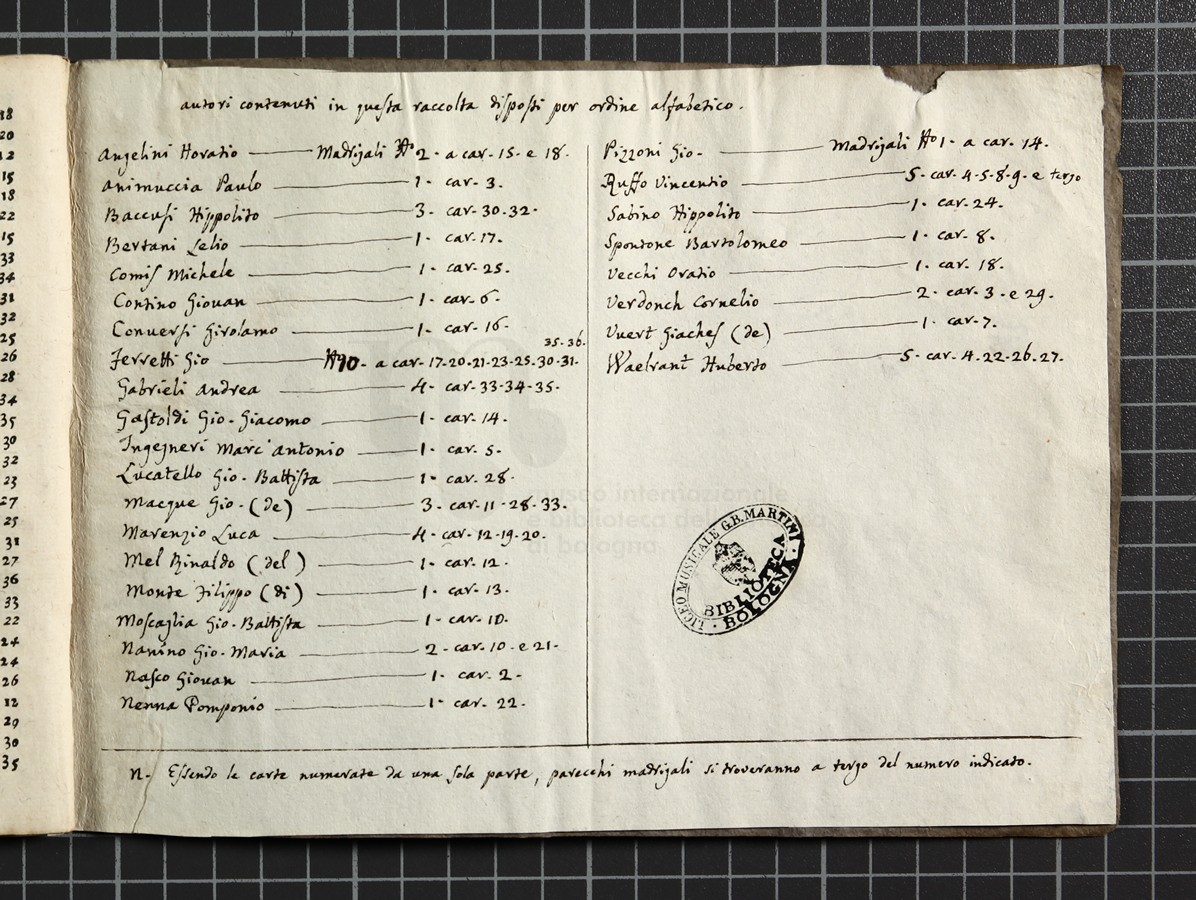 autori contenuti in questa raccolta disposti per ordine alfabetico.
Angelini Horatio — Madrigali No 2. a car. 15. e 18.
Animuccia Paulo — 1. car. 3.
Baccusi Hippolito — 3. car. 30. 32.
Bertani Lelio — 1. car. 17.
Comis Michele — 1. car. 25.
Contino Giovan — 1. car. 6.
Conversi Girolamo — 1. car. 16.
35. 36.
Ferretti Gio — No 10. a car. 17. 20. 21. 23. 25. 30. 31.
Gabrieli Andrea — 4. car. 33. 34. 35.
Gastoldi Gio. Giacomo — 1. car. 14.
Ingegneri Marc'antonio — 1. car. 5.
Lucatello Gio. Battista — 1. car. 28.
Macque Gio. (de) — 3. car. 11. 28. 33.
Marenzio Luca — 4. car. 12. 19. 20.
Mel Rinaldo (del) — 1. car. 12.
Monte Filippo (di) — 1. car. 13.
Moscaglia Gio. Battista — 1. car. 10.
Nanino Gio. Maria — 2. car. 10. e 21.
Nasco Giovan — 1. car. 2.
Nenna Pomponio — 1. car. 22.
Pizzoni Gio. — Madrigali No 1. a car. 14.
Ruffo Vincentio — 5. car. 4. 5. 8. 9. e tergo
Sabino Hippolito — 1. car. 24.
Spontone Bartolomeo — 1. car. 8.
Vecchi Oratio — 1. car. 18.
Verdonch Cornelio — 2. car. 3. e 29.
Vuert Giaches (de) — 1. car. 7.
Waelrant Huberto — 5. car. 4. 22. 26. 27.
n. Essendo le carte numerate da una sola parte, parecchi madrigali si troveranno a tergo del numero indicato.
LICEO MUSICALE G.B. MARTINI
BIBLIOTECA
BOLOGNA
museo internazionale
e biblioteca della musica
di bologna
18
20
12
15
18
22
15
33
34
31
32
25
26
28
34
35
30
32
23
27
25
31
27
36
33
22
24
24
26
12
29
30
35